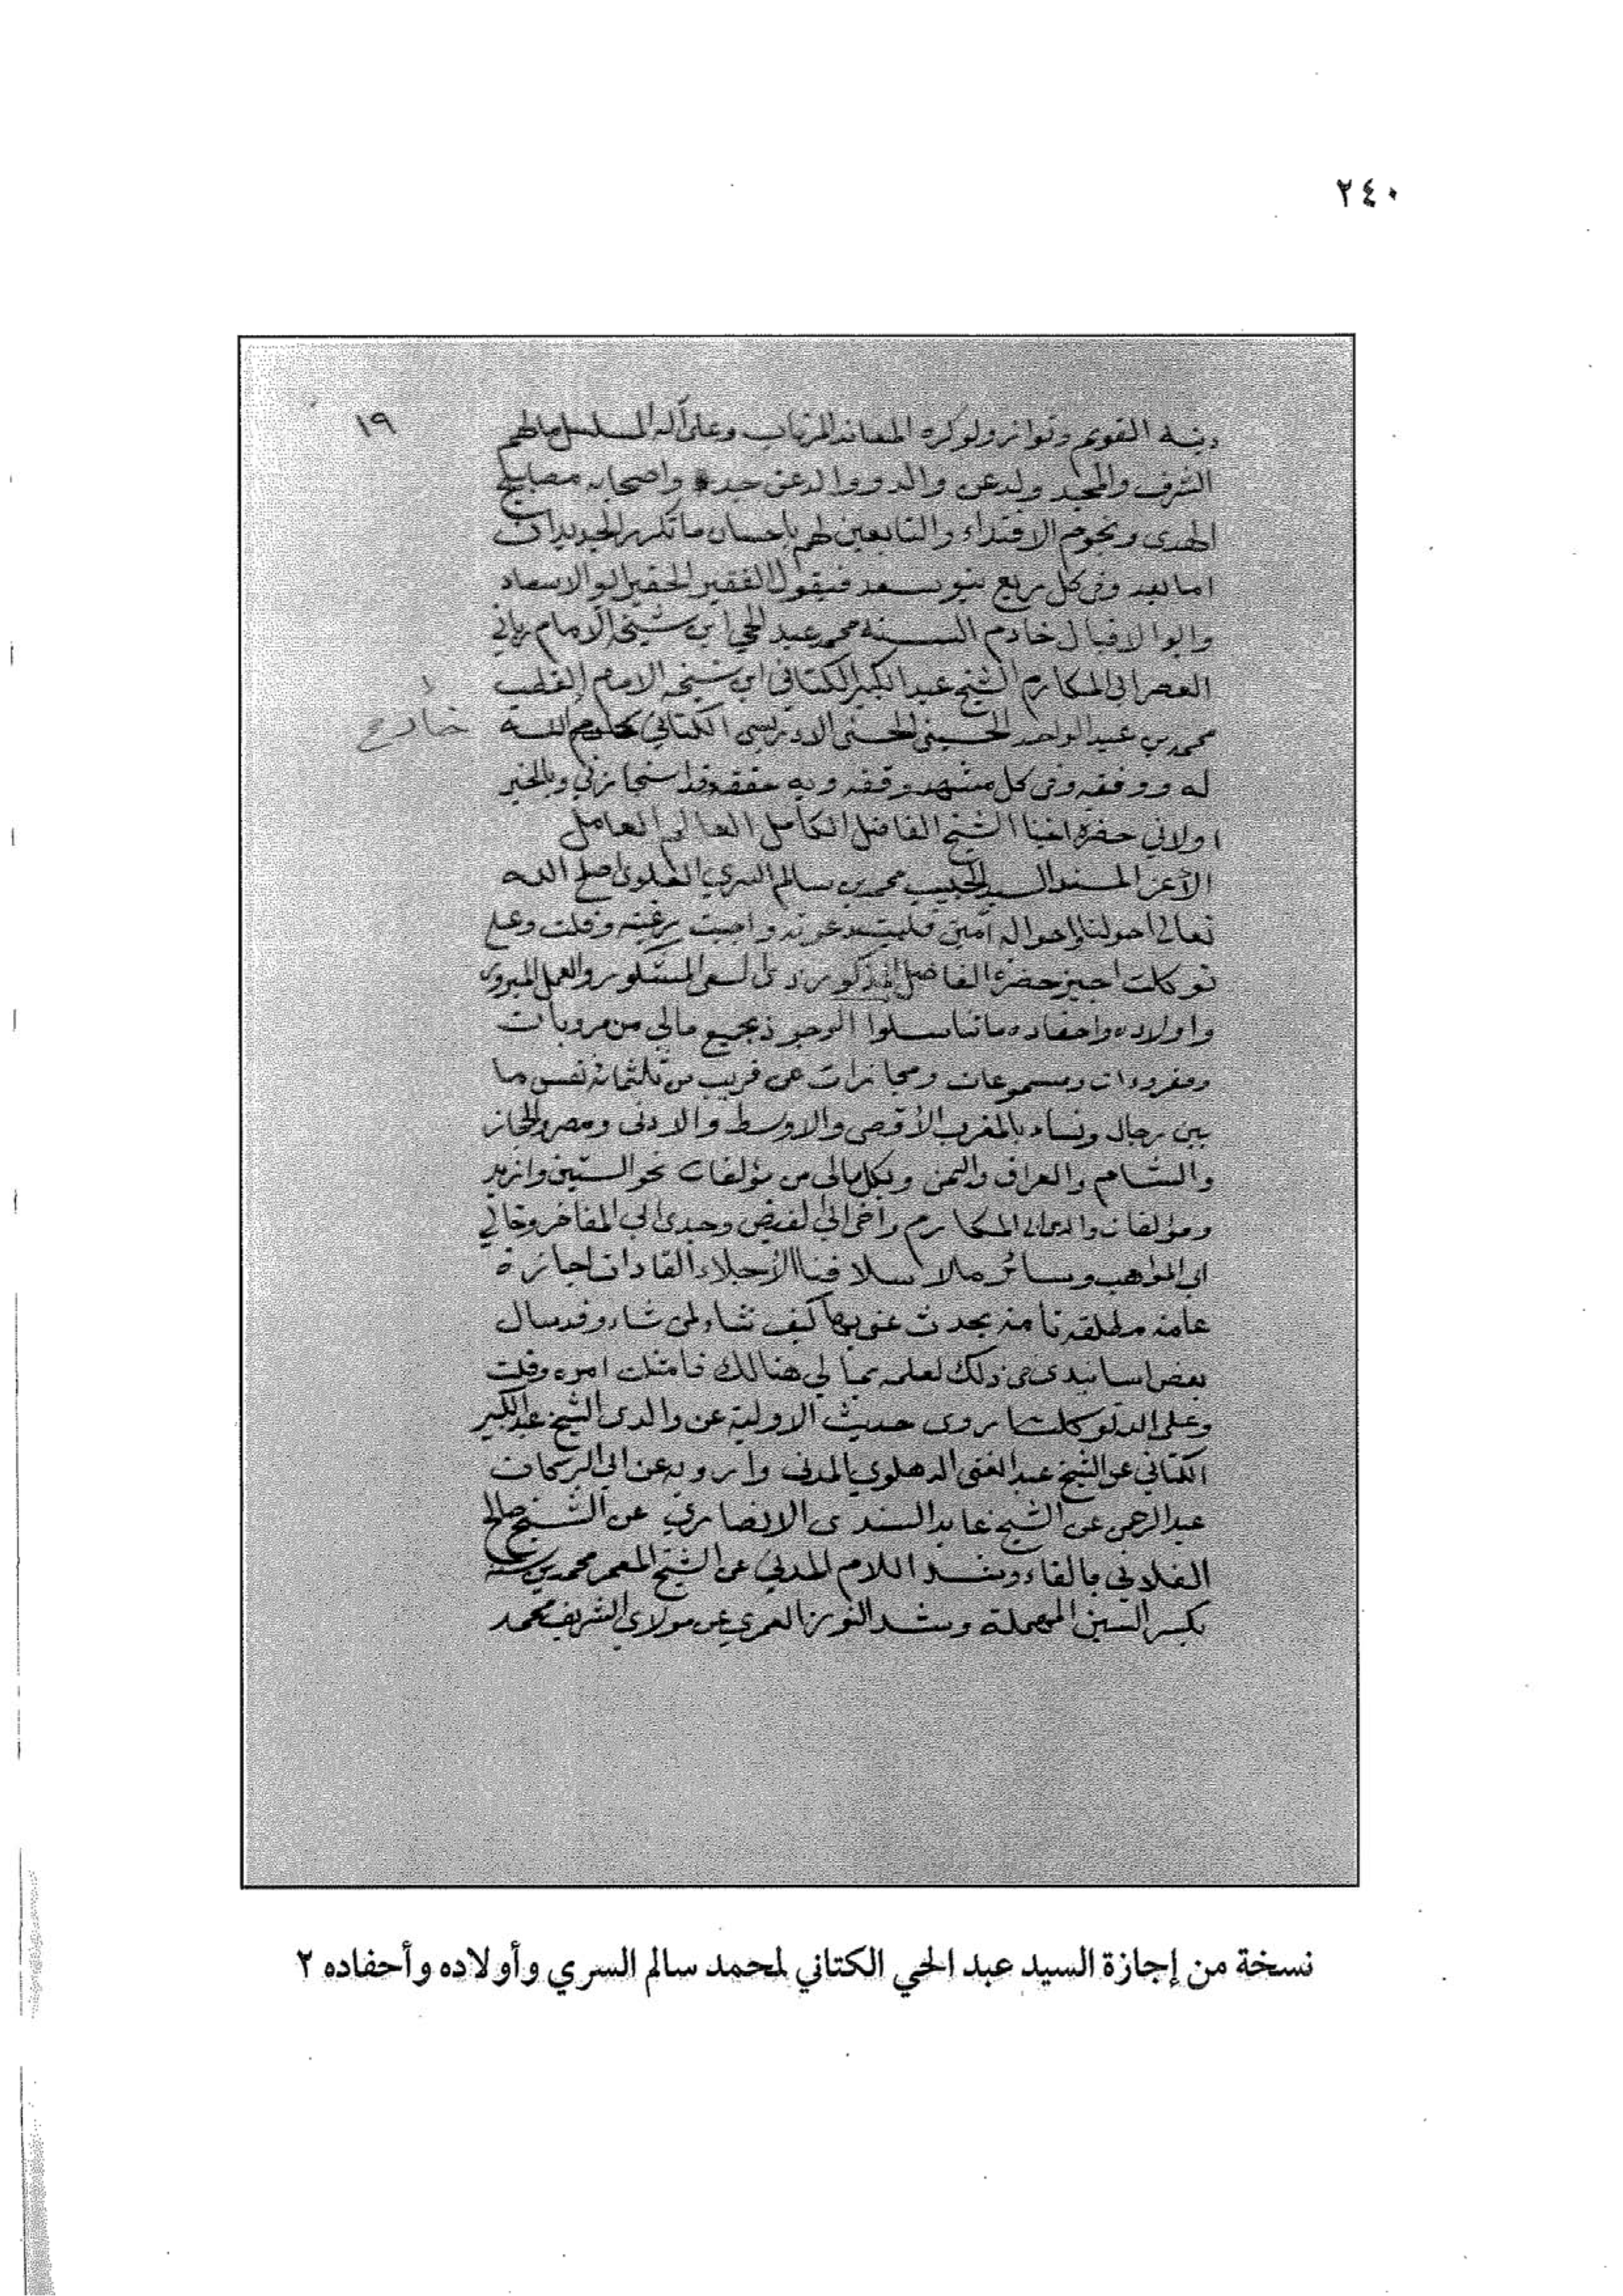 ٢٤٠
١٩
دينه القويم وتواتر ولو كره المعاند المرتاب وعلى آله المسلسل مالهم
الشرف والمجد ولد عن والد ووالد عن جده واصحابه مصابيح
الهدى ونجوم الاقتداء والتابعين لهم بإحسان ما تكرر الجديدان
اما بعد وفي كل ربع بنو سعد فيقول الفقير الحقير ابو الاسعاد
وابو الاقبال خادم السنة محمد عبد الحي ابن شيخه الامام رباني
العصر ابي المكارم الشيخ عبد الكبير الكتاني ابن شيخه الامام القطب
محمد بن عبد الواحد الحسيني الحسني الادريسي الكتاني الله
خار
له ووفقه وفي كل مشهد وقفه وبه حققه قد استجازني وبالخير
اولاني حضرة اخينا الشيخ الفاضل الكامل العالم العامل
الأعز المسند السيد الحبيب محمد بن سالم السري العلوي اصلح الله
تعالى احولنا واحواله آمين فلبيت دعوته واجبت رغبته وقلت وعلى
توكلت اجيز حضرة الفاضل المذكور ذي السعي المشكور والعمل المبرور
واولاده واحفاده ما تناسلوا الوجود بجميع مالي من مرويات
ومقروءات ومسموعات ومجازات عن قريب من ثلثمائة نفس ما
بين رجال ونساء بالمغرب الأقصى والاوسط والادنى ومصر والحجاز
والشام والعراق واليمن وبكل مالي من مؤلفات نحو الستين وازيد
ومؤلفات والدي ابي المكارم وأخي ابي الفيض وجدي ابي المفاخر وخالي
ابي المواهب وسائر ما لاسلافنا الأجلاء القادات اجازة
عامة مطلقة تامة يحدث عني بها كيف شاء لمن شاء وقد سال
بعض اسانيدي في ذلك لعلمه بما لي هنالك فامتثلت امره وقلت
وعلى الله توكلت اروى حديث الاولية عن والدي الشيخ عبد الكبير
الكتاني عن الشيخ عبد الغني الدهلوي المدني وارويه عن ابي البركات
عبد الرحمن عن الشيخ عابد السندي الانصاري عن الشيخ صالح
الفلاني بالفاء وشد اللام المدني عن الشيخ المعمر محمد بن سنة
بكسر السين المهملة وشد النون العمري عن مولاي الشريف محمد
نسخة من إجازة السيد عبد الحي الكتاني لمحمد سالم السري وأولاده وأحفاده ٢